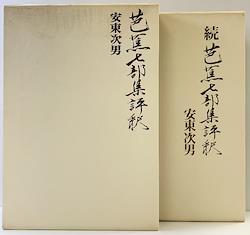 芭蕉七部集評釈
安東次男
続芭蕉七部集評釈
安東次男